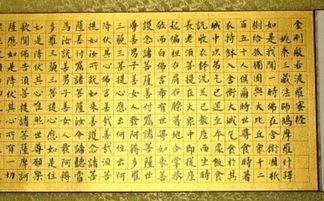 金剛般若波羅蜜經
姚秦三藏法師鳩摩羅什譯
如是我聞一時佛在舍衛國祇
樹給孤獨園與大比丘眾千二
百五十人俱爾時世尊食時著
衣持鉢入舍衛大城乞食於其
城中次第乞已還至本處飯食
訖收衣鉢洗足已敷座而坐時
長老須菩提在大眾中即從座
起偏袒右肩右膝著地合掌恭
敬而白佛言希有世尊如來善
護念諸菩薩善付囑諸菩薩世
尊善男子善女人發阿耨多羅
三藐三菩提心應云何住云何
降伏其心佛言善哉善哉須菩
提如汝所說如來善護念諸菩
薩善付囑諸菩薩汝今諦聽當
為汝說善男子善女人發阿耨
多羅三藐三菩提心應如是住
如是降伏其心唯然世尊願樂
欲聞佛告須菩提諸菩薩摩訶
薩應如是降伏其心所有一切